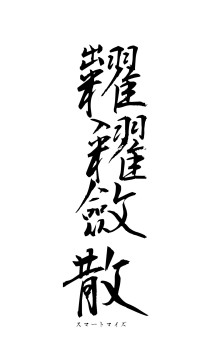 糶糴斂散
スマートマイズ